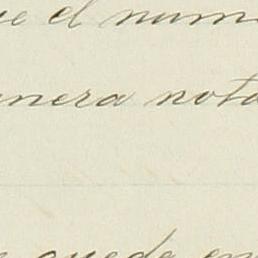 ue el num
anera nota
e quede en